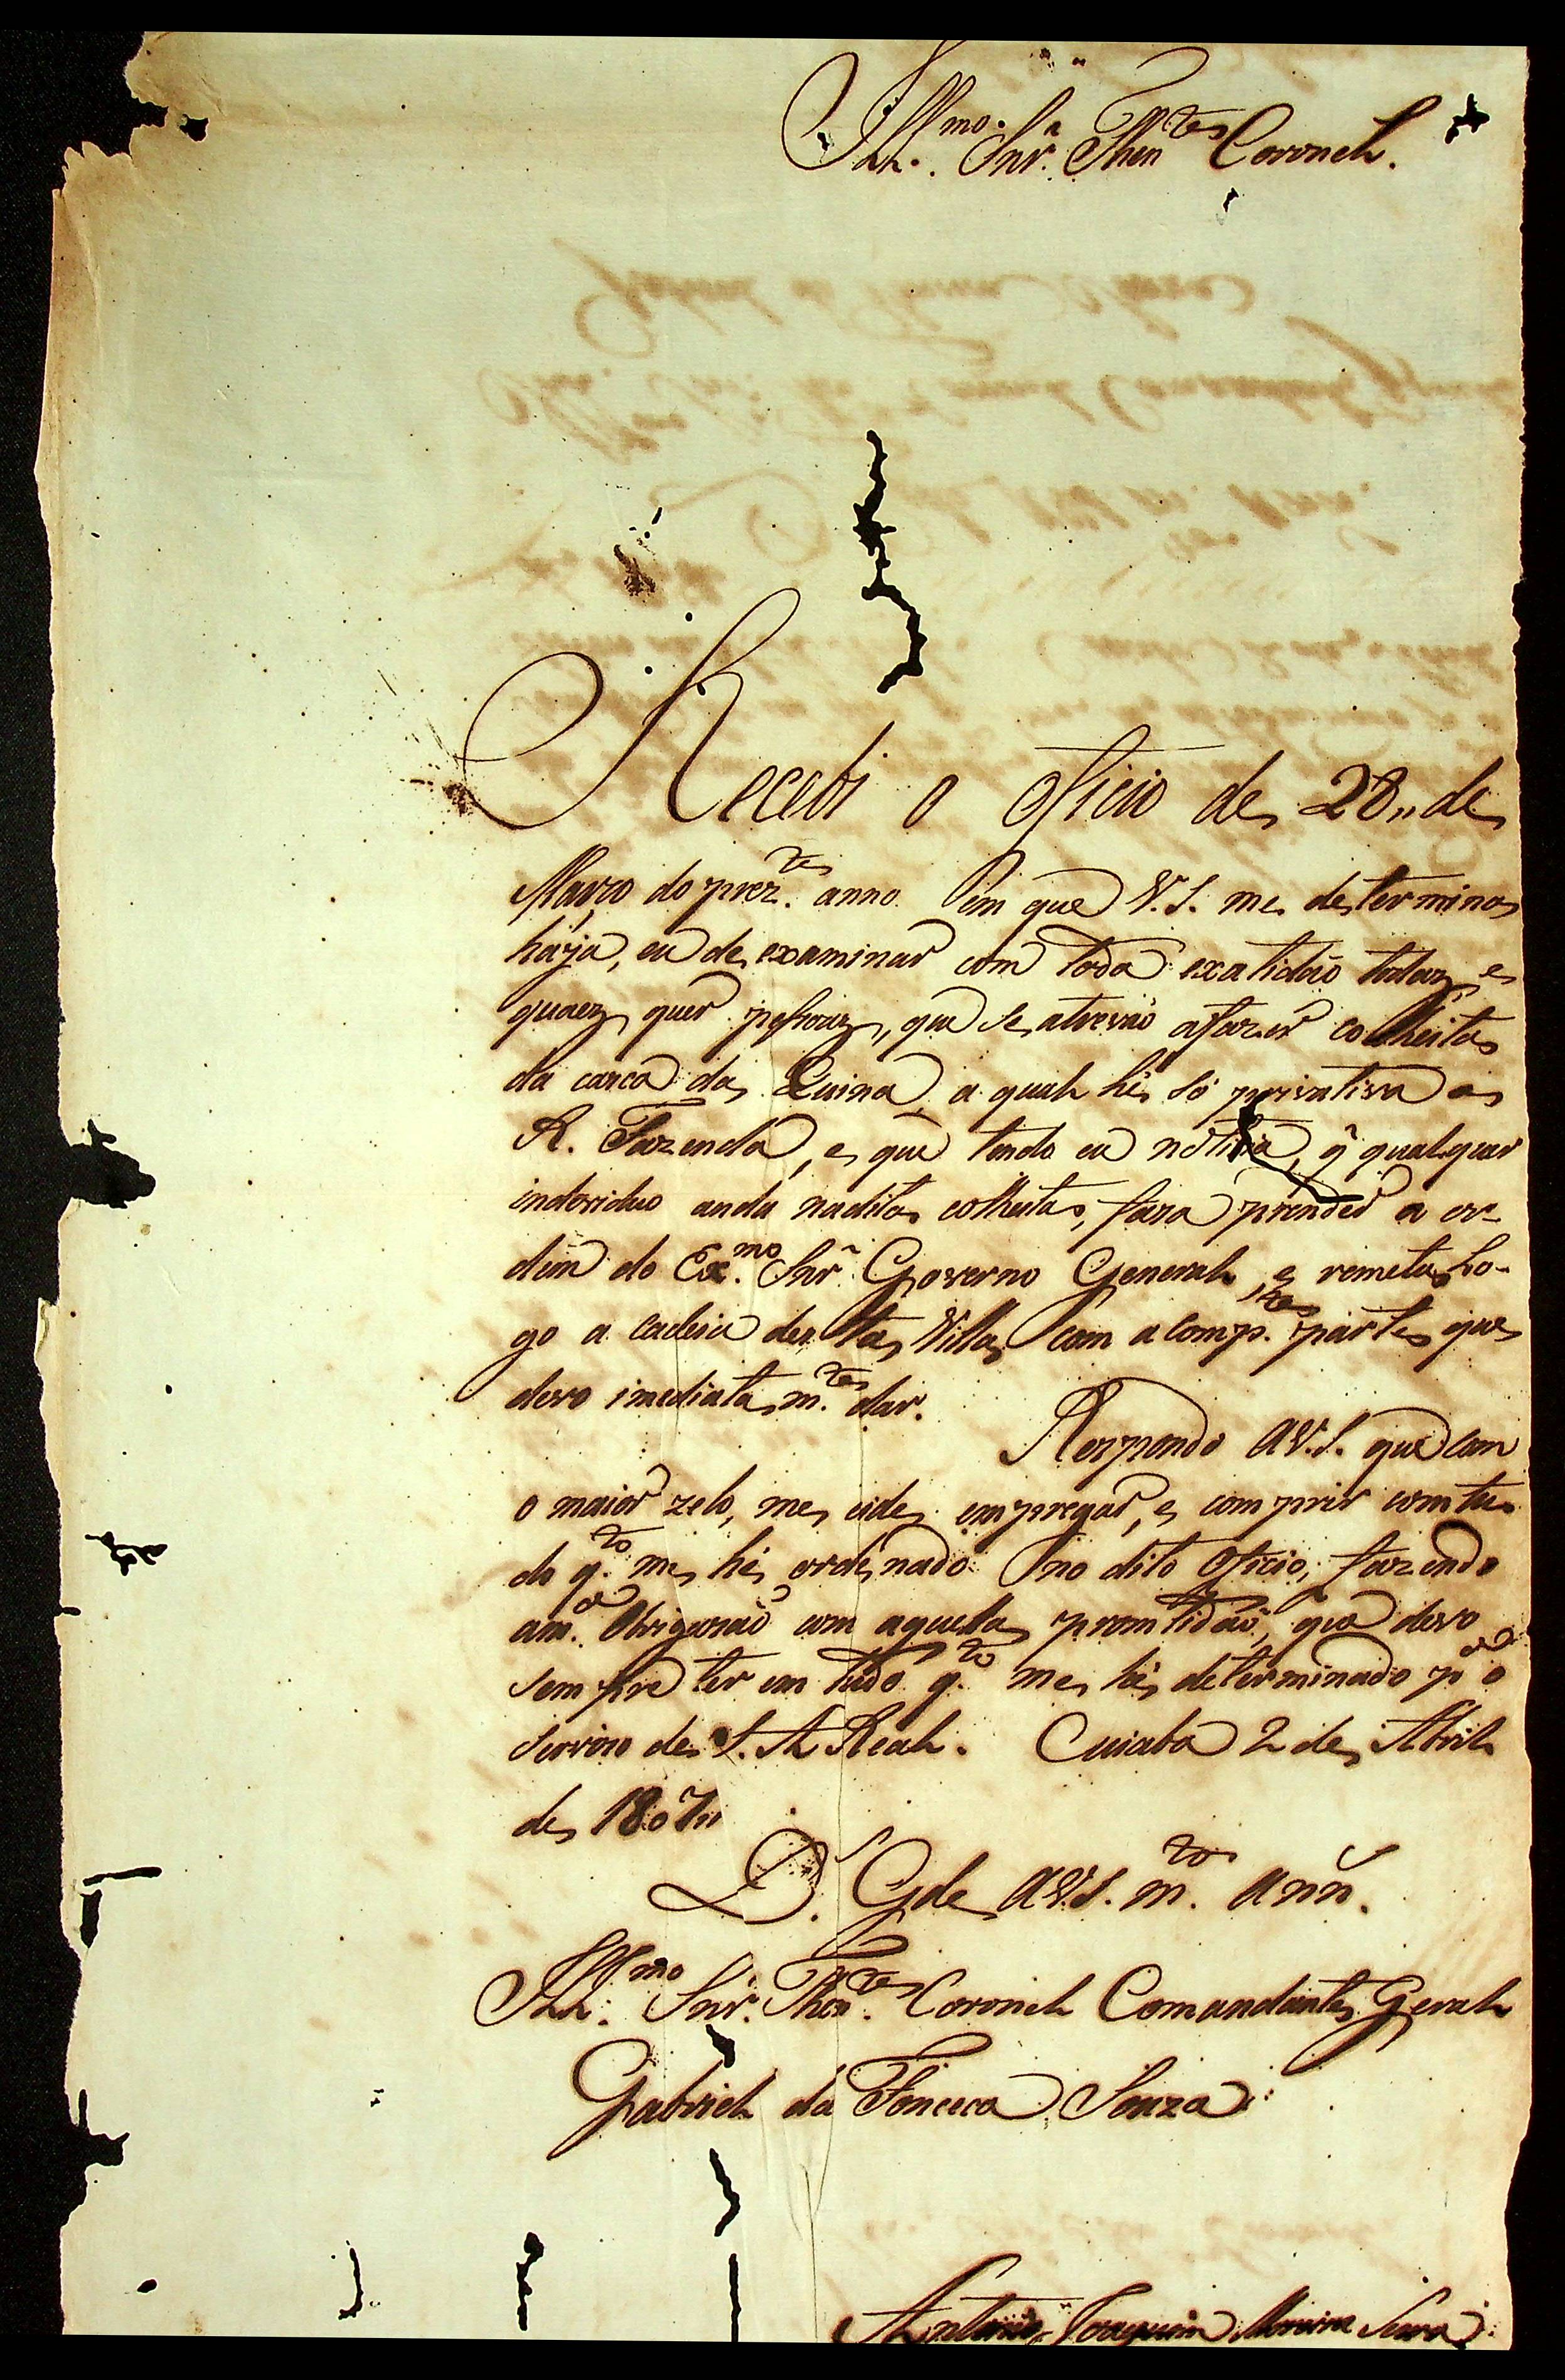 Ill.mo Snr. Then.te Coronel.
Recebi o oficio de 28,, de
Março do prez.te anno em que V.S. me determina
haja, eu de examinar com toda exatidão todaz, e
quaez quer pessoaz, que se atrevão afazer colheitas
da casca da Quina, a qual hé só privativa a
R. Fazenda, e que tendo eu noticia, q̃ qualquer
individuo anda naditas colheitas, faça prender a or-
dem do Ex.mo Snr. Governo General, e remeta lo-
go a cadeia desta Villa com a comp.te parte que
devo imediatam.te dar.
Respondo aV.S. que com
o maior zelo, me eide empregar, e comprir com tu-
do q.to me hé ordenado no dito oficio, fazendo
am.a Obrigação com aquella promtidão, que devo
sempre ter em tudo q.to me hé determinado p.a o
Serviço de S. A Real. Cuiaba 2 de Abril
de 1807,,
D.s G.de aV.S. m.to ann.
Ill.mo Snr. Then.te Coronel Comandante Geral
Gabriel da Fonceca Souza
Antonio Joaquim Moreira